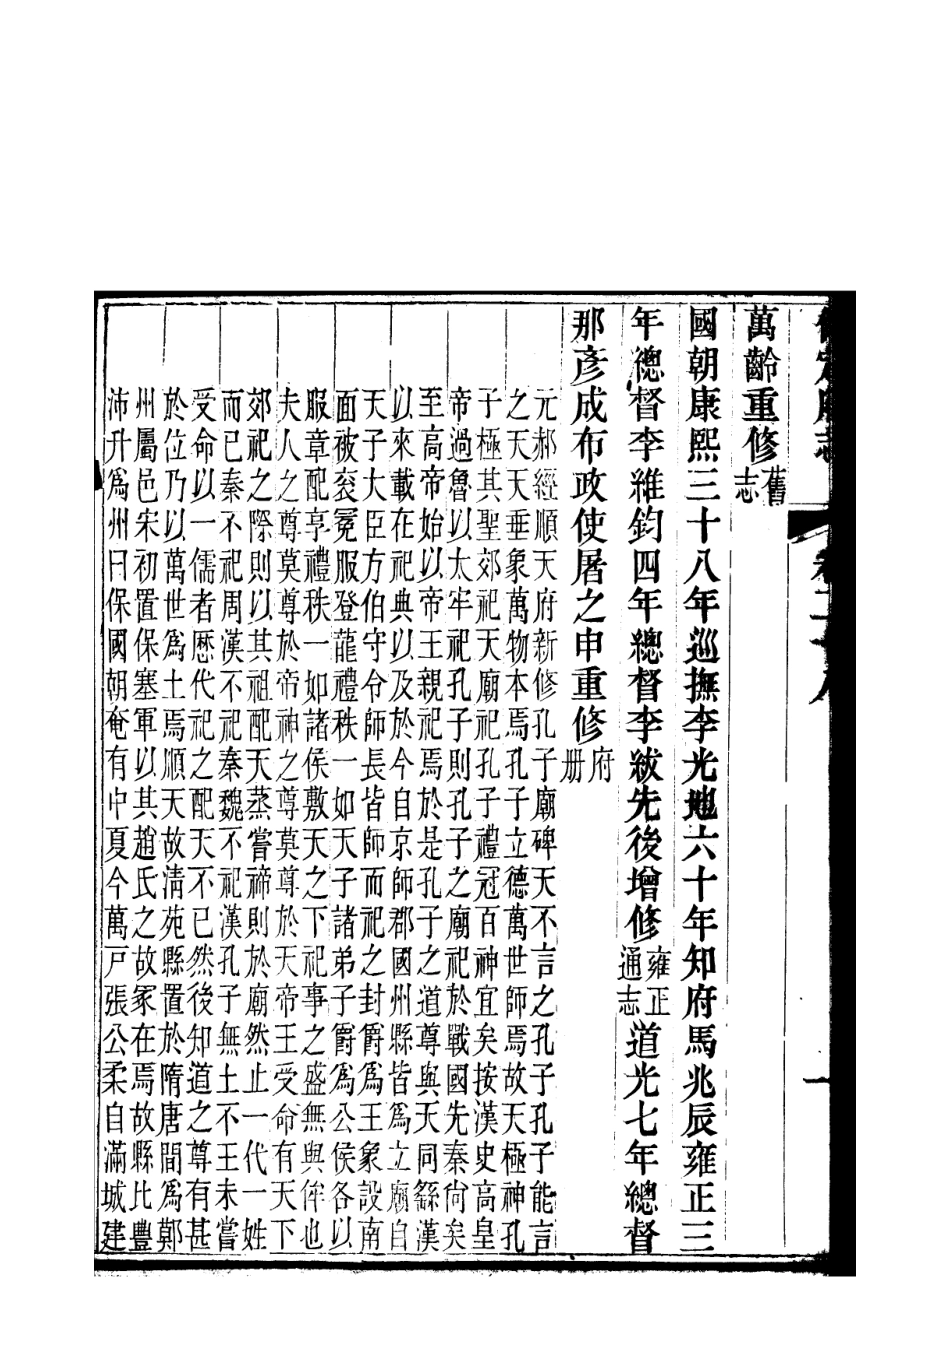 萬齡重修舊志
國朝康熙三十八年巡撫李光地六十年知府馬兆辰雍正三
年總督李維鈞四年總督李紱先後增修雍正通志道光七年總督
那彥成布政使屠之申重修府册
元郝經順天府新修孔子廟碑天不言之孔子孔子能言
之天天垂象萬物本焉孔子立德萬世師焉故天極神孔
子極其聖郊祀天廟祀孔子禮冠百神宜矣按漢史高皇
帝過魯以太牢祀孔子則孔子之廟祀於戰國先秦尙矣
至高帝始以帝王親祀焉於是孔子之道尊與天同繇漢
以來載在祀典以及於今自京師郡國州縣皆爲立廟自
天子大臣方伯守令師長皆師而祀之封爵爲王象設南
面被衮冕服登龍禮秩一如天子諸弟子爵爲公侯各以
服章配享禮秩一如諸侯敷天之下祀事之盛無與侔也
夫人之尊莫尊於帝神之尊莫尊於天帝王受命有天下
郊祀之際則以其祖配天蒸嘗禘則於廟然止一代一姓
而已秦不祀周漢不祀秦魏不祀漢孔子無土不王未嘗
受命以一儒者歷代祀之配天不已然後知道之尊有甚
於位乃以萬世爲土焉順天故清苑縣置於隋唐間爲鄚
州屬邑宋初置保塞軍以其趙氏之故冢在焉故縣比豐
沛升爲州曰保國朝奄有中夏今萬戸張公柔自滿城建